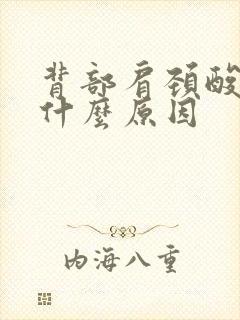 背部肩頸酸
什麼原因
内海八重